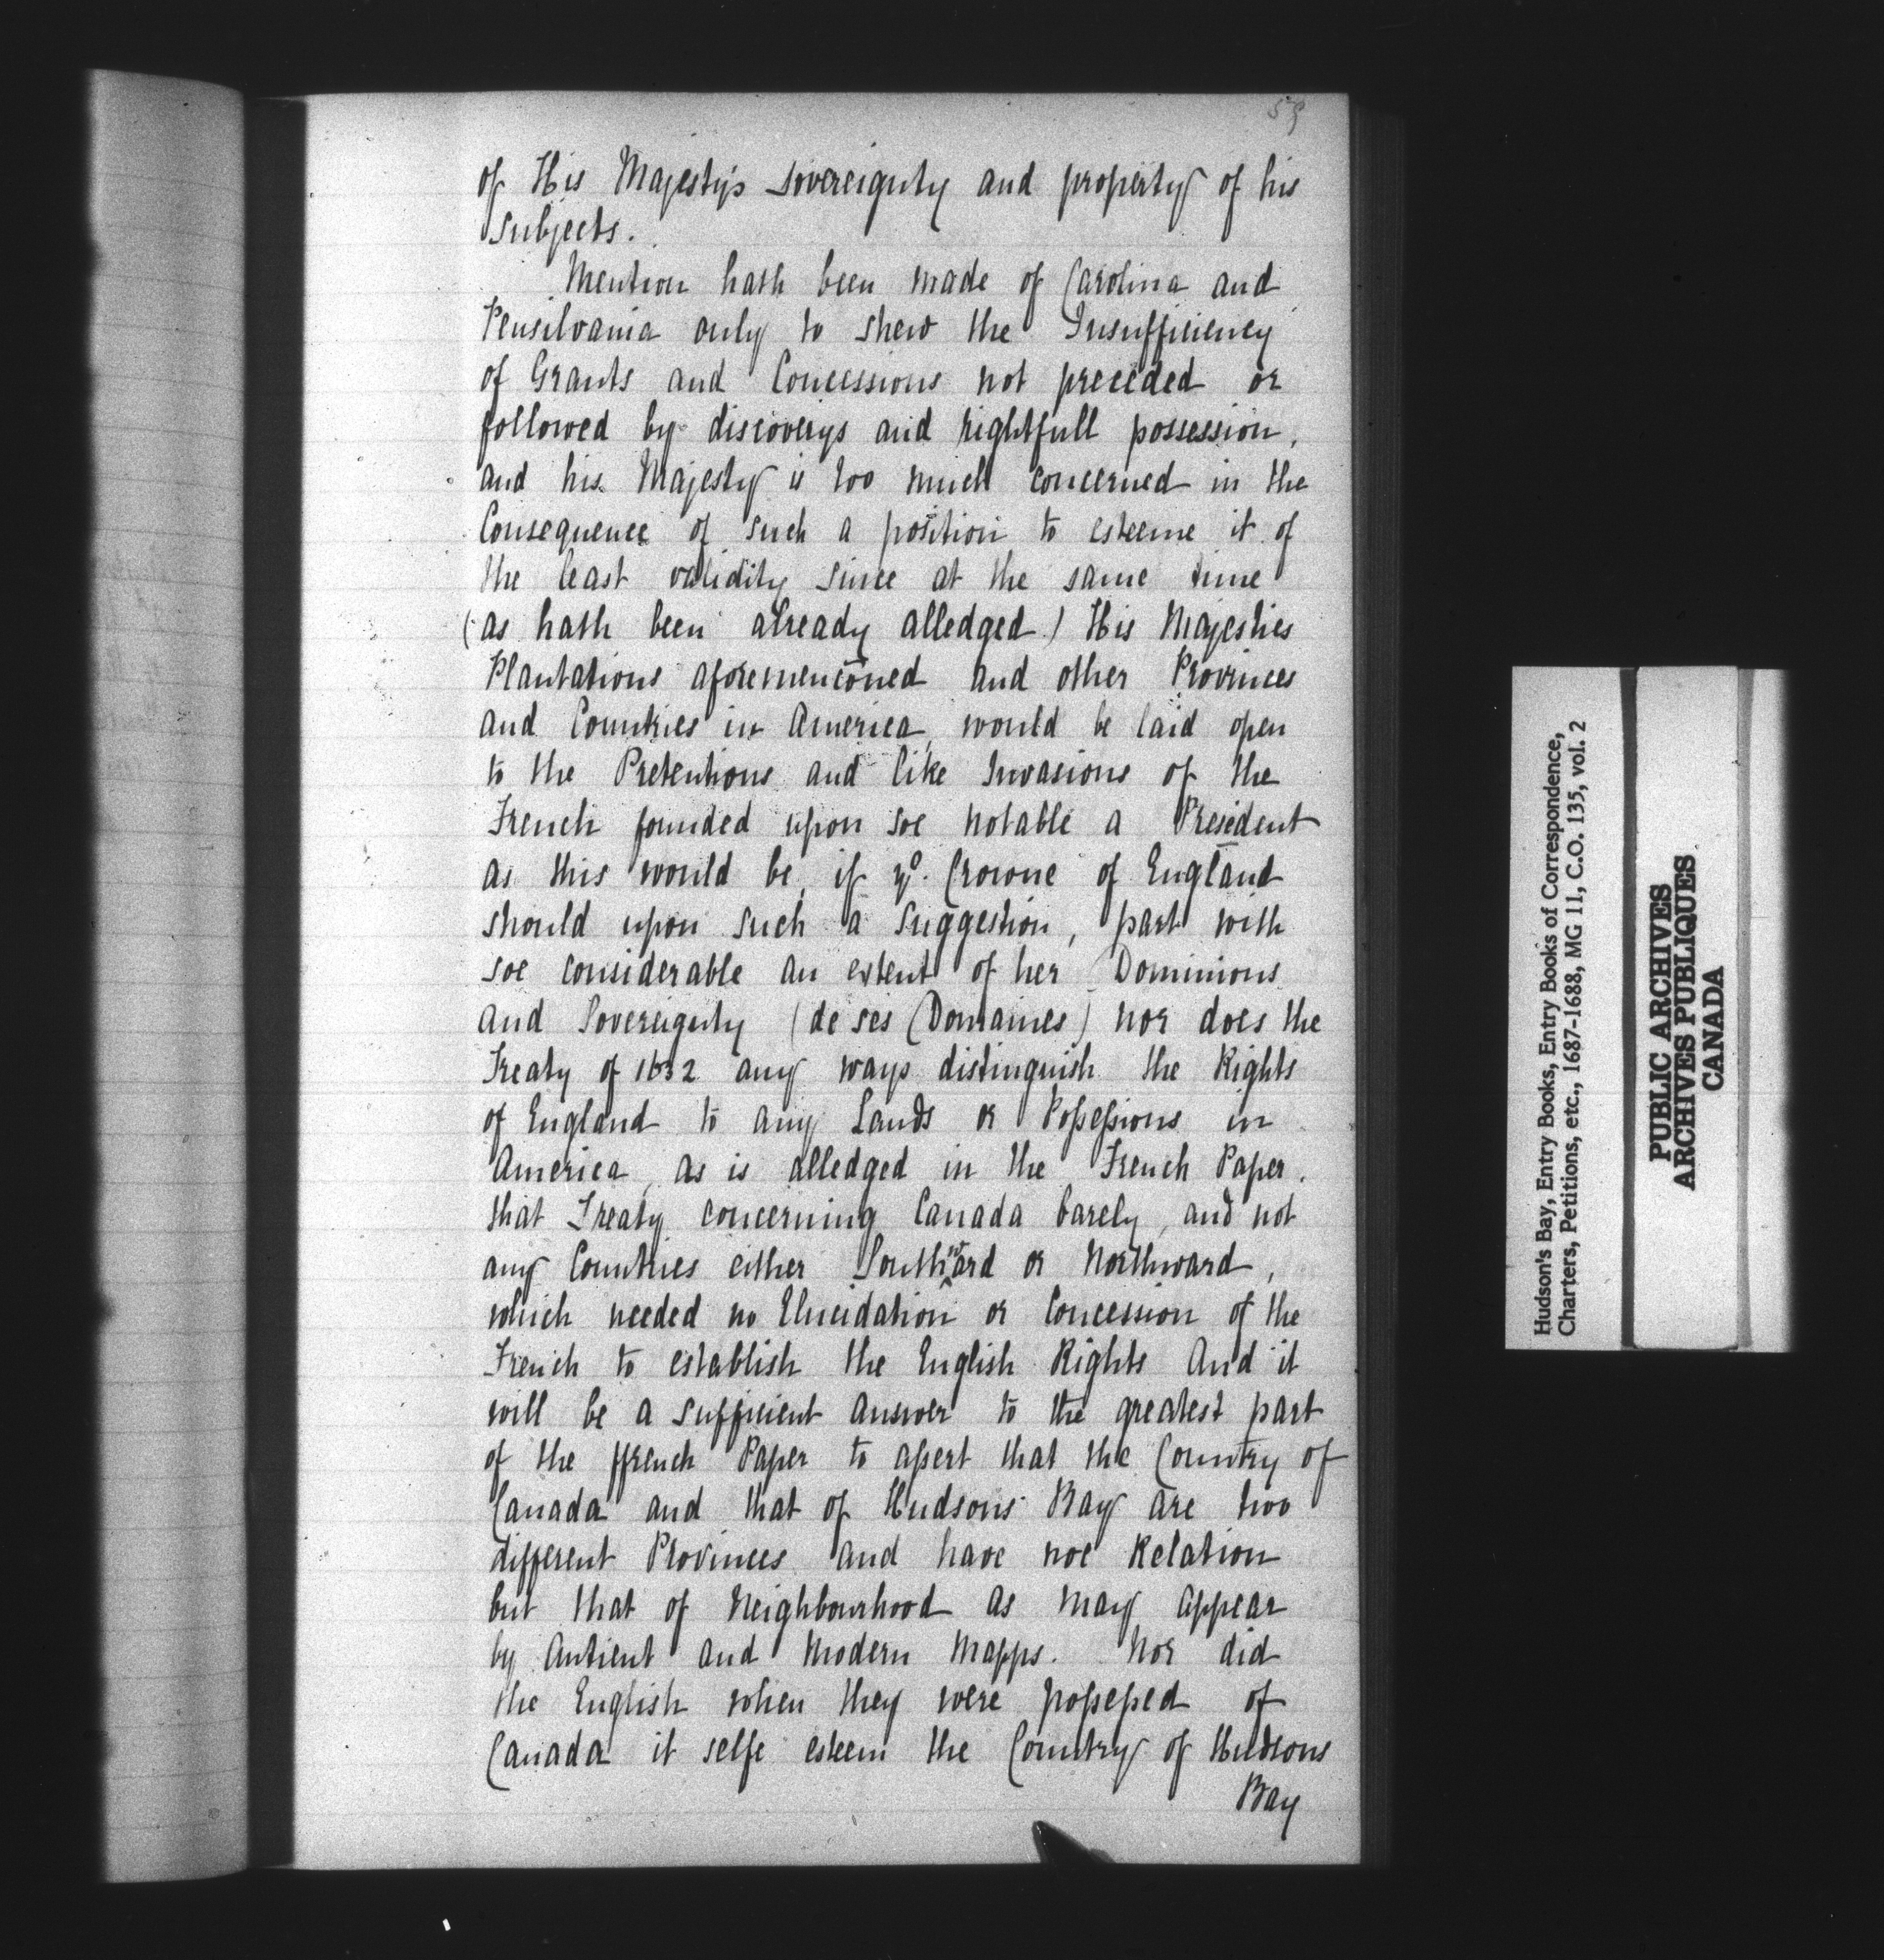 59
of His Majesty's Sovereignty and property of his
Subjects.
Mention hath been made of Carolina and
Pensilvania only to shew the Insufficiency
of Grants and Concessions not preceded or
followed by discoverys and rightfull possession,
and his Majesty is too much concerned in the
Consequence of such a position to esteeme it of
the least validity since at the same time
(as hath been already alledged) His Majesties
Plantations aforemenc̄oned and other Provinces
and Countries in America, would be laid open
to the Pretentions and like Invasions of the
French founded upon soe notable a Presedent
as this would be, if yᵉ. Crowne of England
should upon such a suggestion, part with
soe considerable an extent of her Dominions
and Sovereignty (de ses Domaines) nor does the
Treaty of 1632 any ways distinguish the Rights
of England to any Lands or Poſseſsions in
America, as is alledged in the French Paper.
that Treaty concerning Canada barely, and not
any Countries either Southward or Northward,
which needed no Elucidation or Concession of the
French to establish the English Rights And it
will be a sufficient answer to the greatest part
of the ffrench Paper to aſsert that the Country of
Canada and that of Hudsons Bay are two
different Provinces and have noe Relation
but that of Neighbourhood as may appear
by Antient and Modern Mapps. Nor did
the English when they were poſseſsed of
Canada it selfe esteem the Country of Hudsons
Bay
Hudson's Bay, Entry Books, Entry Books of Correspondence,
Charters, Petitions, etc., 1687-1688, MG 11, C.O. 135, vol. 2
PUBLIC ARCHIVES
ARCHIVES PUBLIQUES
CANADA